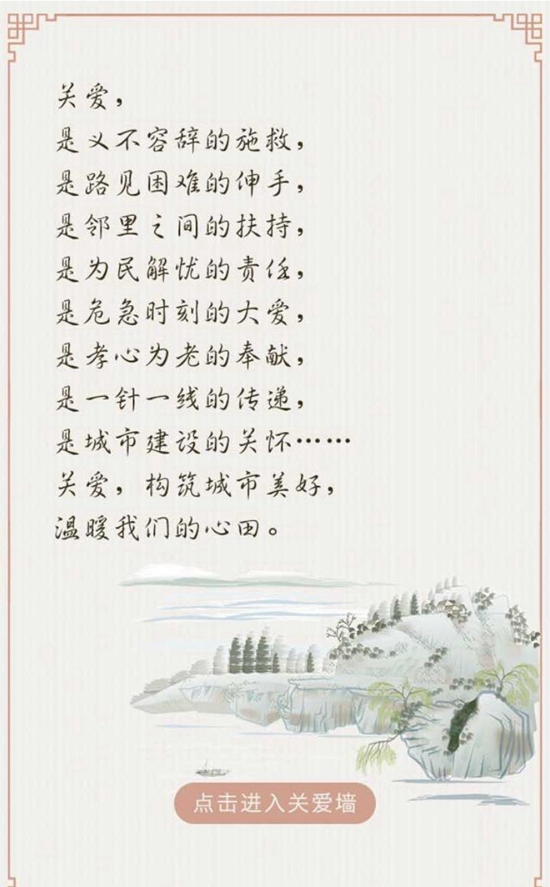 关爱，
是义不容辞的施救，
是路见困难的伸手，
是邻里之间的扶持，
是为民解忧的责任，
是危急时刻的大爱，
是孝心为老的奉献，
是一针一线的传递，
是城市建设的关怀……
关爱，构筑城市美好，
温暖我们的心田。
点击进入关爱墙